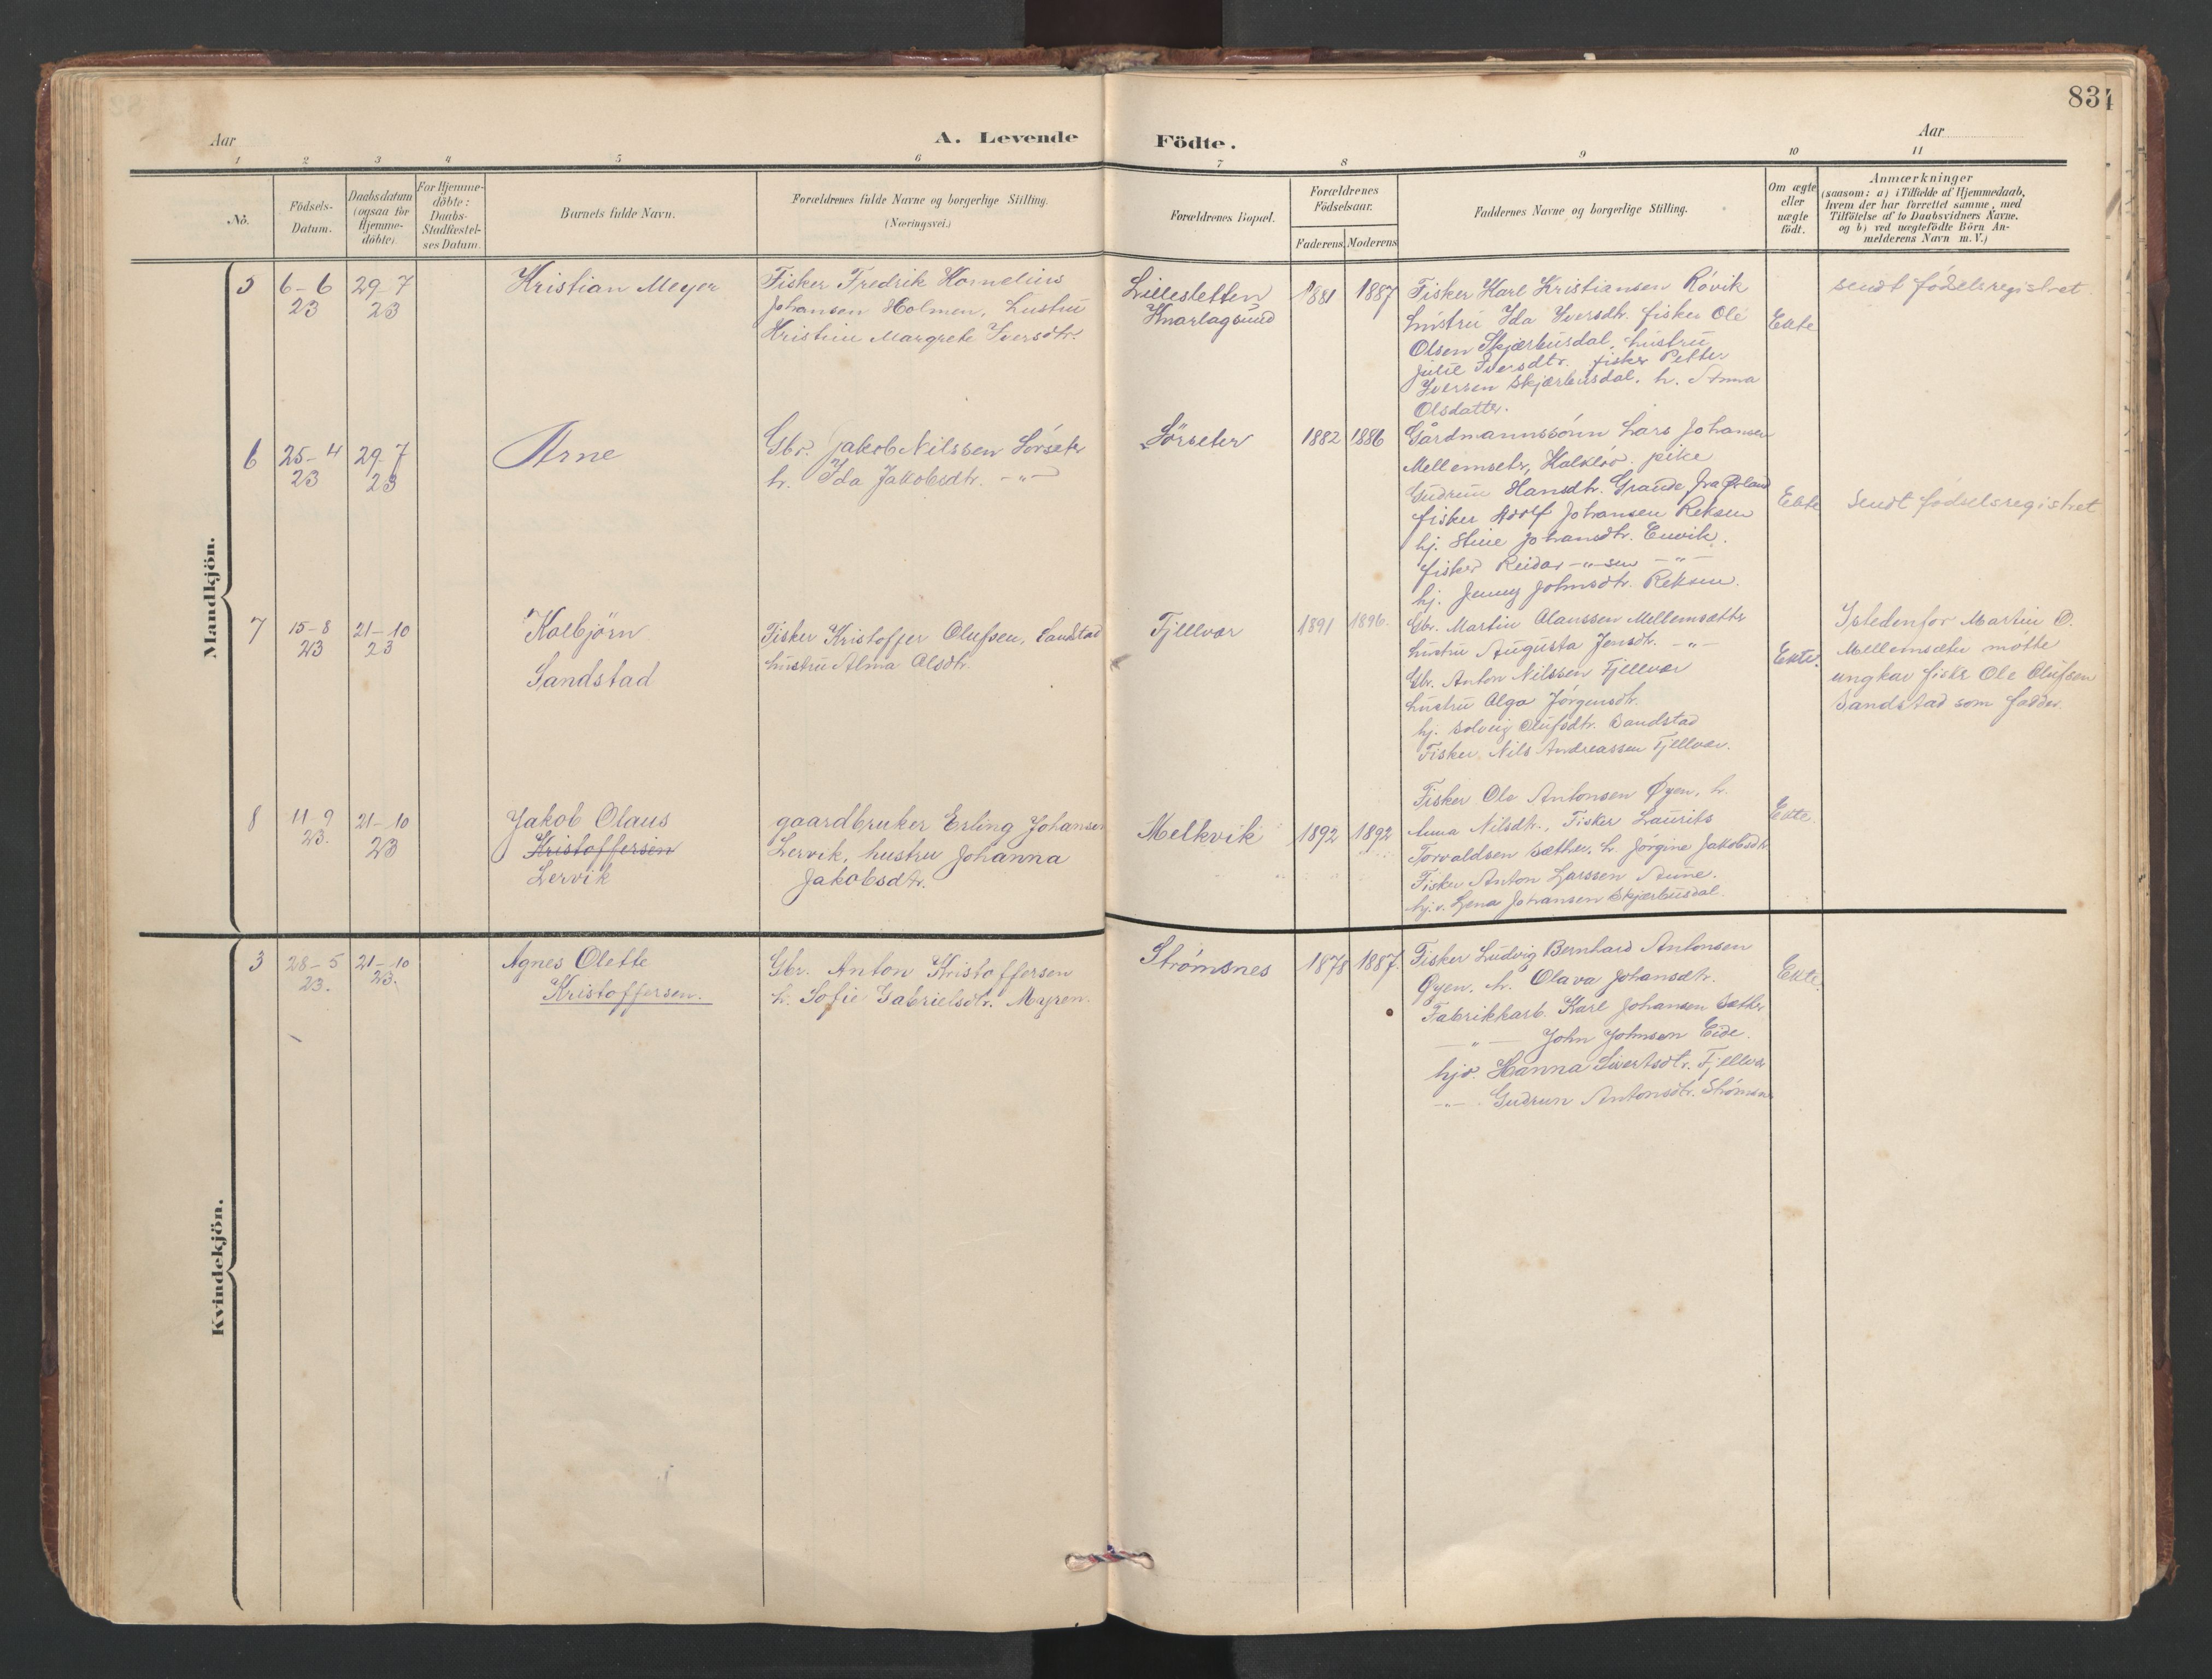 83
Aar
A. Levende
Födte.
Aar
1 2 3 4 5 6 7 8 9 10 11
No.
Födsels-
Datum.
Daabsdatum
(ogsaa for
Hjemme-
döbte).
For Hjemme-
döbte:
Daabs-
Stadfæstel-
ses Datum.
Barnets fulde Navn.
Forældrenes fulde Navne og borgerlige Stilling.
(Næringsvei.)
Forældrenes Bopæl.
Forældrenes
Födselsaar.
Faderens Moderens
Faddernes Navne og borgerlige Stilling.
Om ægte
eller
uægte
födt.
Anmærkninger
(saasom: a) i Tilfælde af Hjemmedaab,
hvem der har forrettet samme, med
Tilföielse af to Daabsvidners Navne,
og b) ved uægtefödte Börn An-
melderens Navn m. V.)
Mandkjön.
5
6-6
23
29-7
23
Kristian Meyer
Fisker Fredrik Kornelius
Johansen Holmen, hustru
Kristine Margrete Iversdtr.
Lillesletten
Knarlagsund
1881
1887
Fisker Karl Kristiansen Róvik
hustru Ida Iversdtr. fisker Ole
Olsen Skjærbusdal, hustru
Julie Iversdtr. fisker Petter
Iversen Skjærbusdal. h. Anna
Olsdatter.
Ekte
sendt fódselsregistret
6
25-4
23
29-7
23
Arne
Gbr. Jakob Nilssen Sórseter
h. Ida Jakobsdtr. -"-
Sórseter
1882
1886
Gårdmannssónn Lars Johansen
Mellemsetr, Kalklóv. pike
Gudrun Hansdtr. Grande fra Ørland
fisker Adolf Johansen Reksen
hj. Stine Johansdtr. Envik.
fisker Reidar -"-sen -"-
hj. Jenny Johnsdtr. Reksen.
Ekte
Sendt fódselsregistret
7
15-8
23
21-10
23
Kolbjörn
Sandstad
Fisker Kristoffer Olufsen, Sandstad
hustru Alma Olsdtr.
Fjellvær
1891
1896.
Gbr. Martin Olaussen Mellemsætter
hustru Augusta Jensdtr. -"-
Gbr. Anton Nilssen Fjellvær
hustru Olga Jørgensdtr.
hj. Solveig Olufsdtr. Sandstad
Fisker Nils Andreassen Fjellvær.
Ekte.
Istedenfor Martin O.
Mellemsæter mótte
ungkar fisker Ole Olufsen
Sandstad som fadder.
8
11-9
23.
21-10
23
Jakob Olaus
Kristoffersen
Lervik
gaardbruker Erling Johansen
Lervik, hustru Johanna
Jakobsdtr.
Melkvik
1892
1892
Fisker Ole Antonsen Øyen, h.
Anna Nilsdtr., Fisker Laurits
Torvaldsen Sæther, h. Jørgine Jakobsdtr
Fisker Anton Larssen Aune.
hj.v. Lena Johansen Skjærbusdal.
Ekte.
Kvindekjön.
3
28-5
23.
21-10
23.
Agnes Olette
Kristoffersen.
Gbr. Anton Kristoffersen
h. Sofie Gabrielsdtr. Myren.
Strømsnes
1878
1887.
Fisker Ludvig Bernhard Antonsen
Øyen, h. Olava Johansdtr.
Fabrikkarb. Karl Johansen Sæther
-"- John Johnsen Eide.
hjv. Hanna Sivertsdtr. Fjellvær
-"- Gudrun Antonsdtr. Strømsn
Ekte.